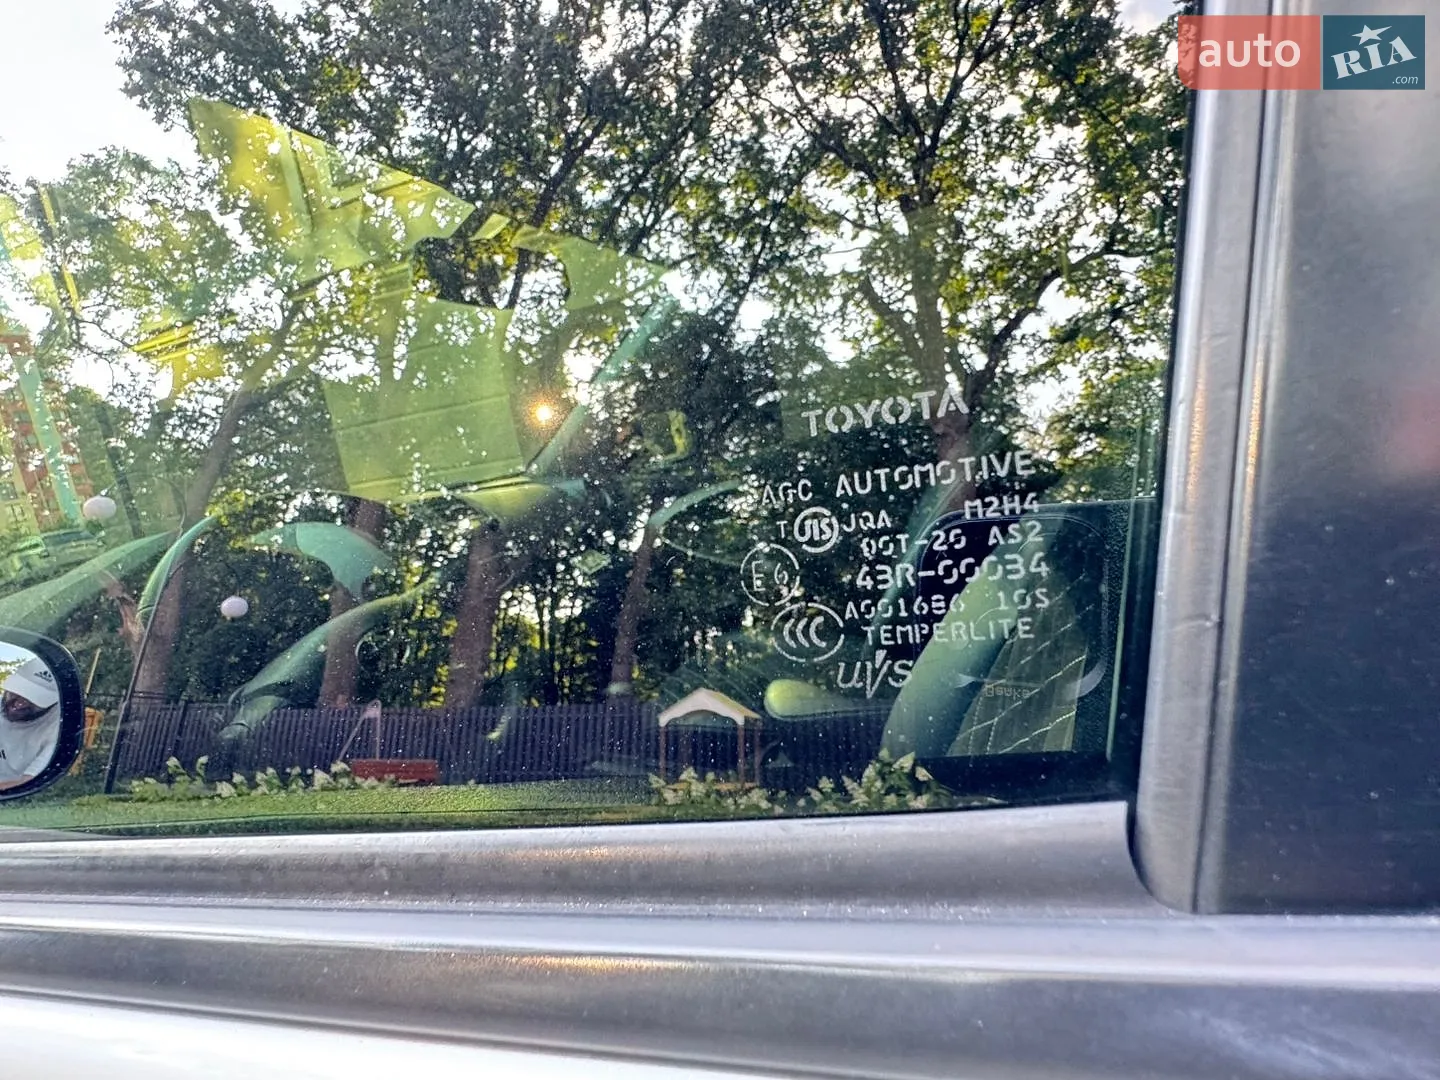 auto RIA.com
TOYOTA
AGC AUTOMOTIVE
T JIS JQA M2H4
DOT-20 AS2
E6 43R-00034
CCC A001686 10S
TEMPERLITE
UVS